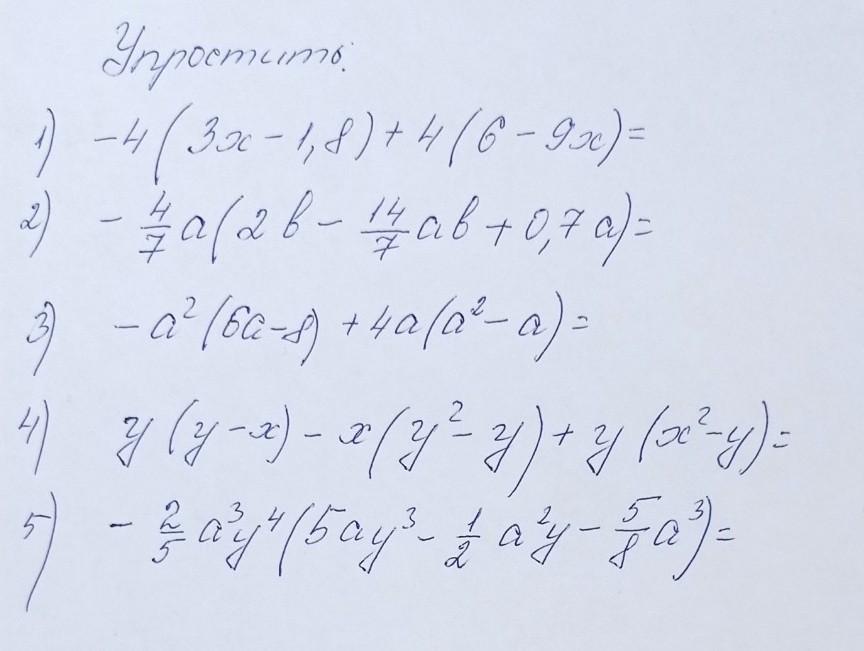 Упростить:
1) -4(3x-1,8)+4(6-9x)=
2) -4/7 a(2b-14/7 ab+0,7a)=
3) -a²(6a-8)+4a(a²-a)=
4) y(y-x)-x(y²-y)+y(x²-y)=
5) -2/5 a³y⁴(5ay³-1/2 a²y-5/8 a³)=